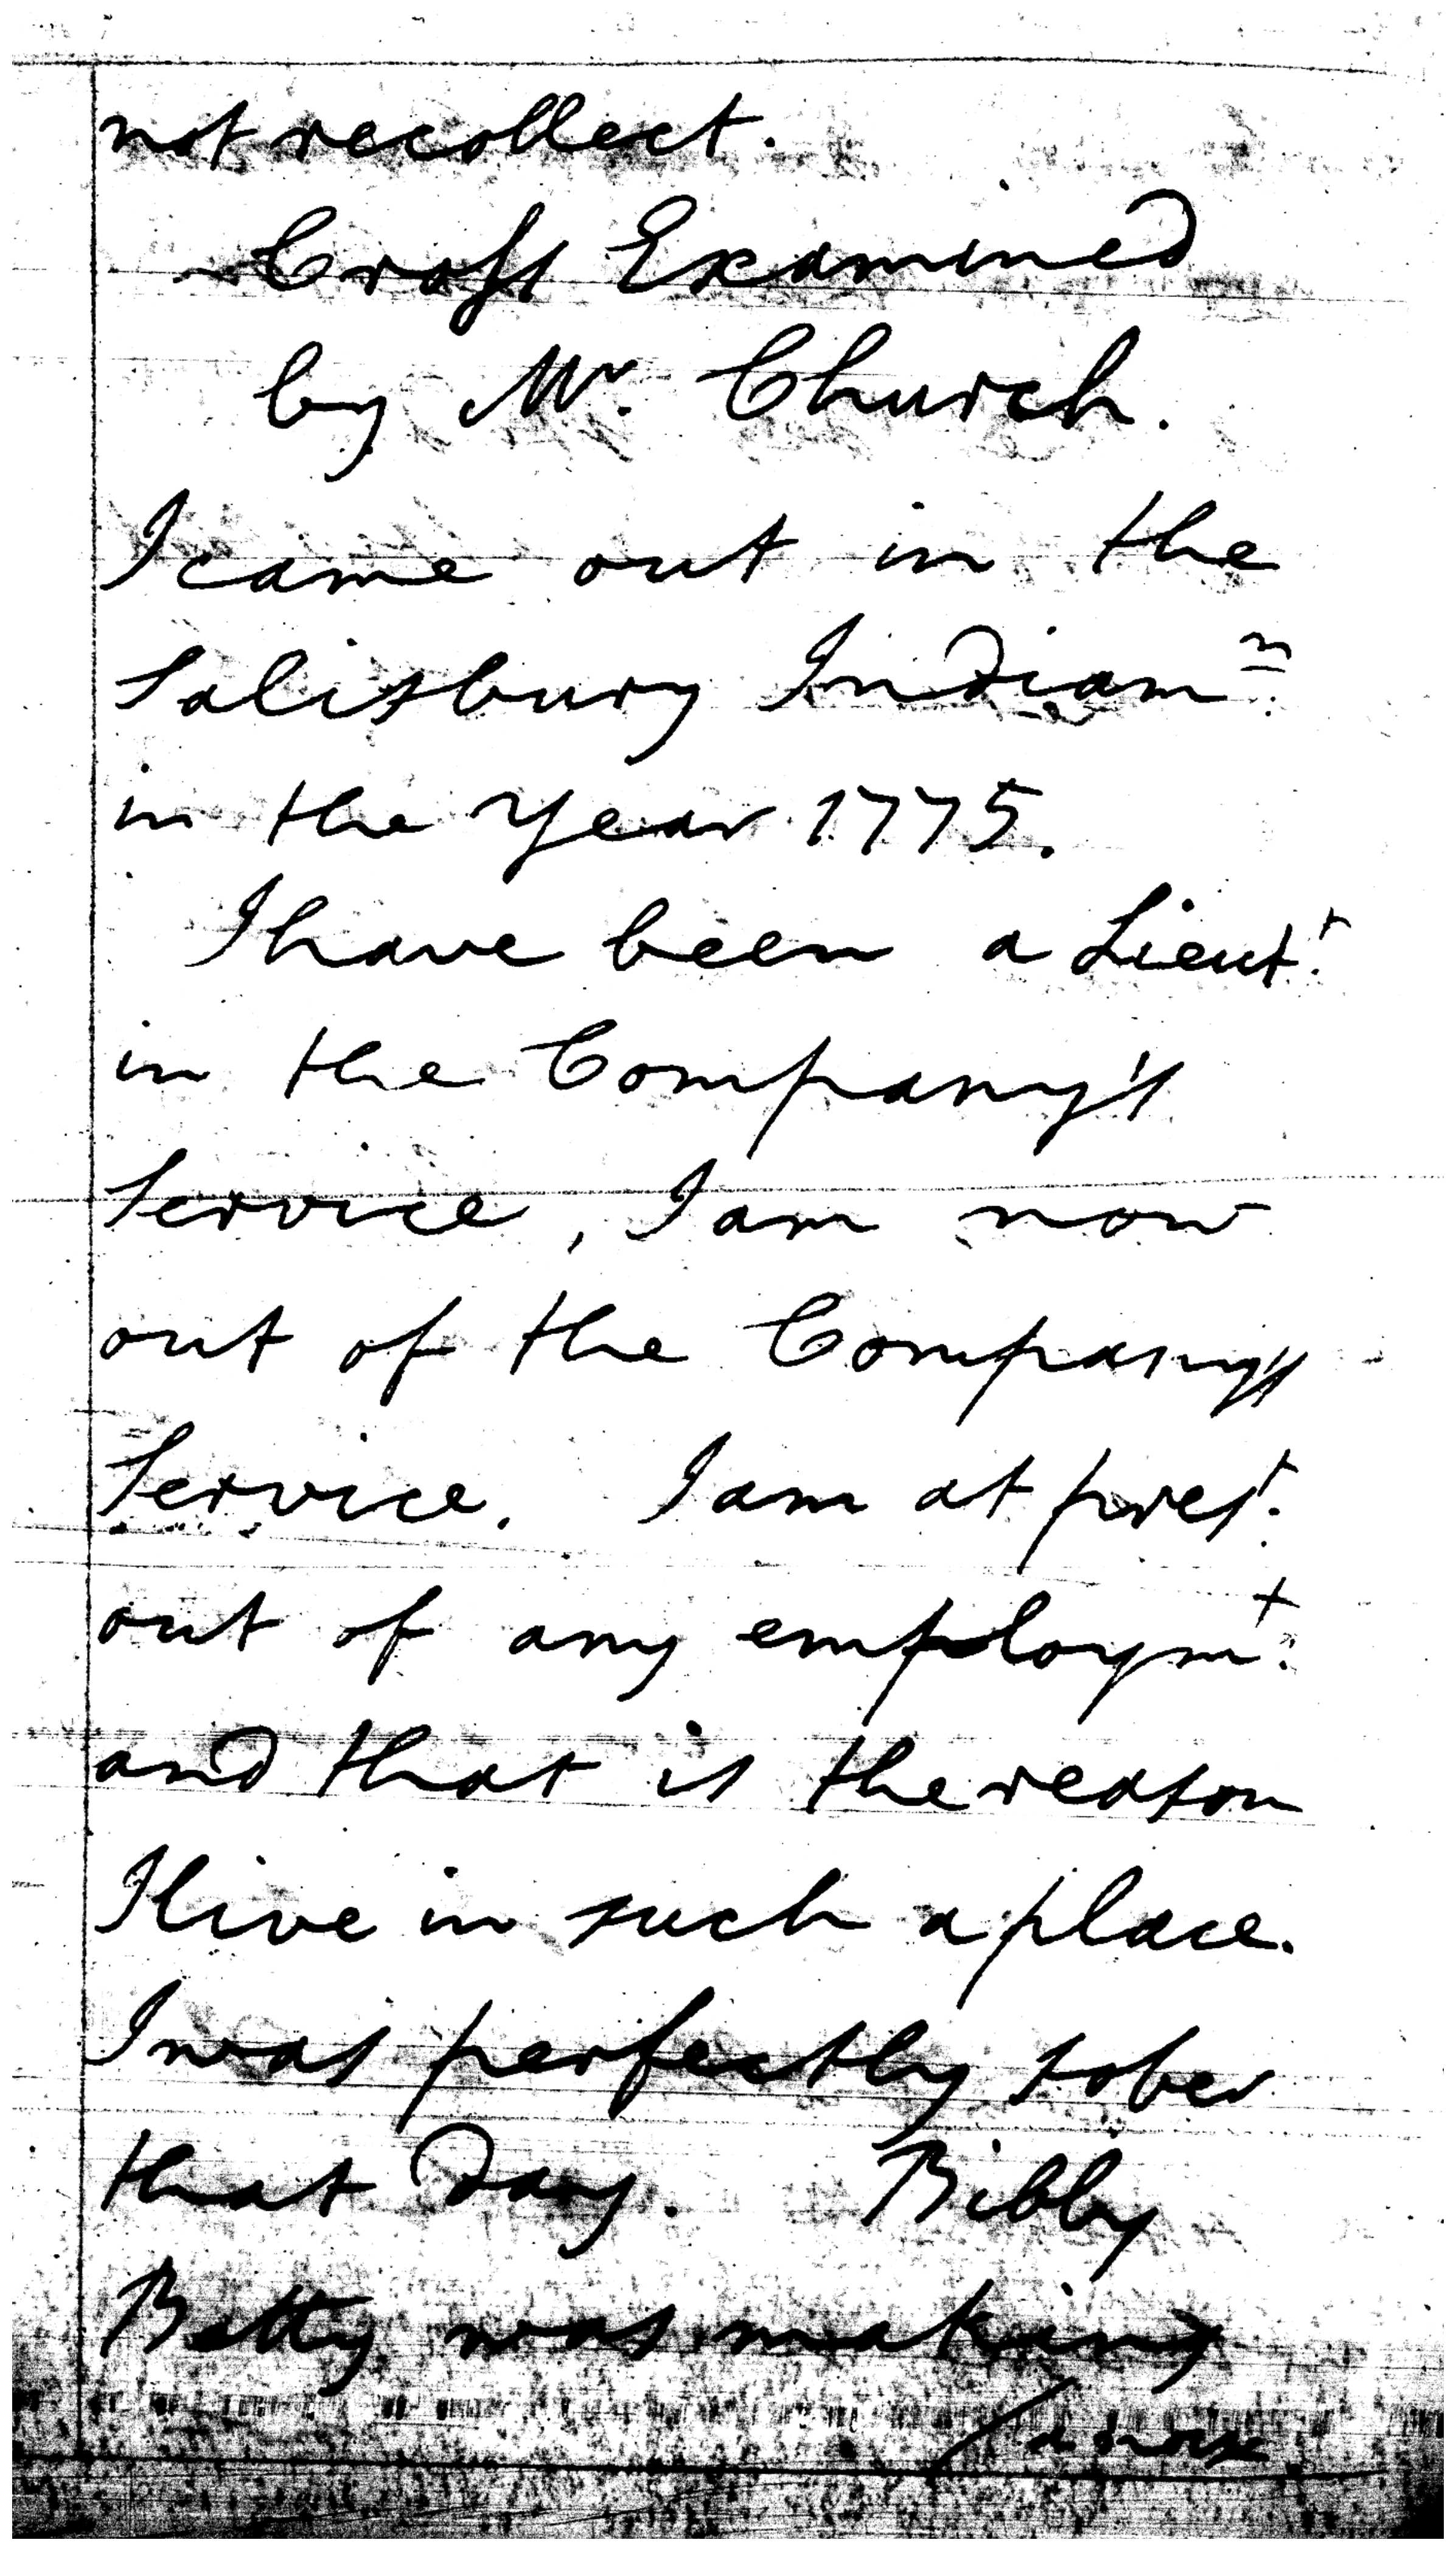 not recollect.
Cross Examined
by Mr. Church.
I came out in the
Salisbury Indiamn.
in the Year 1775.
I have been a Lieutt.
in the Company's
Service, I am now
out of the Company's
Service. I am at prest.
out of any employmt.
and that is the reason
I live in such a place.
I was perfectly sober
that Day. Bibby
Betty was making